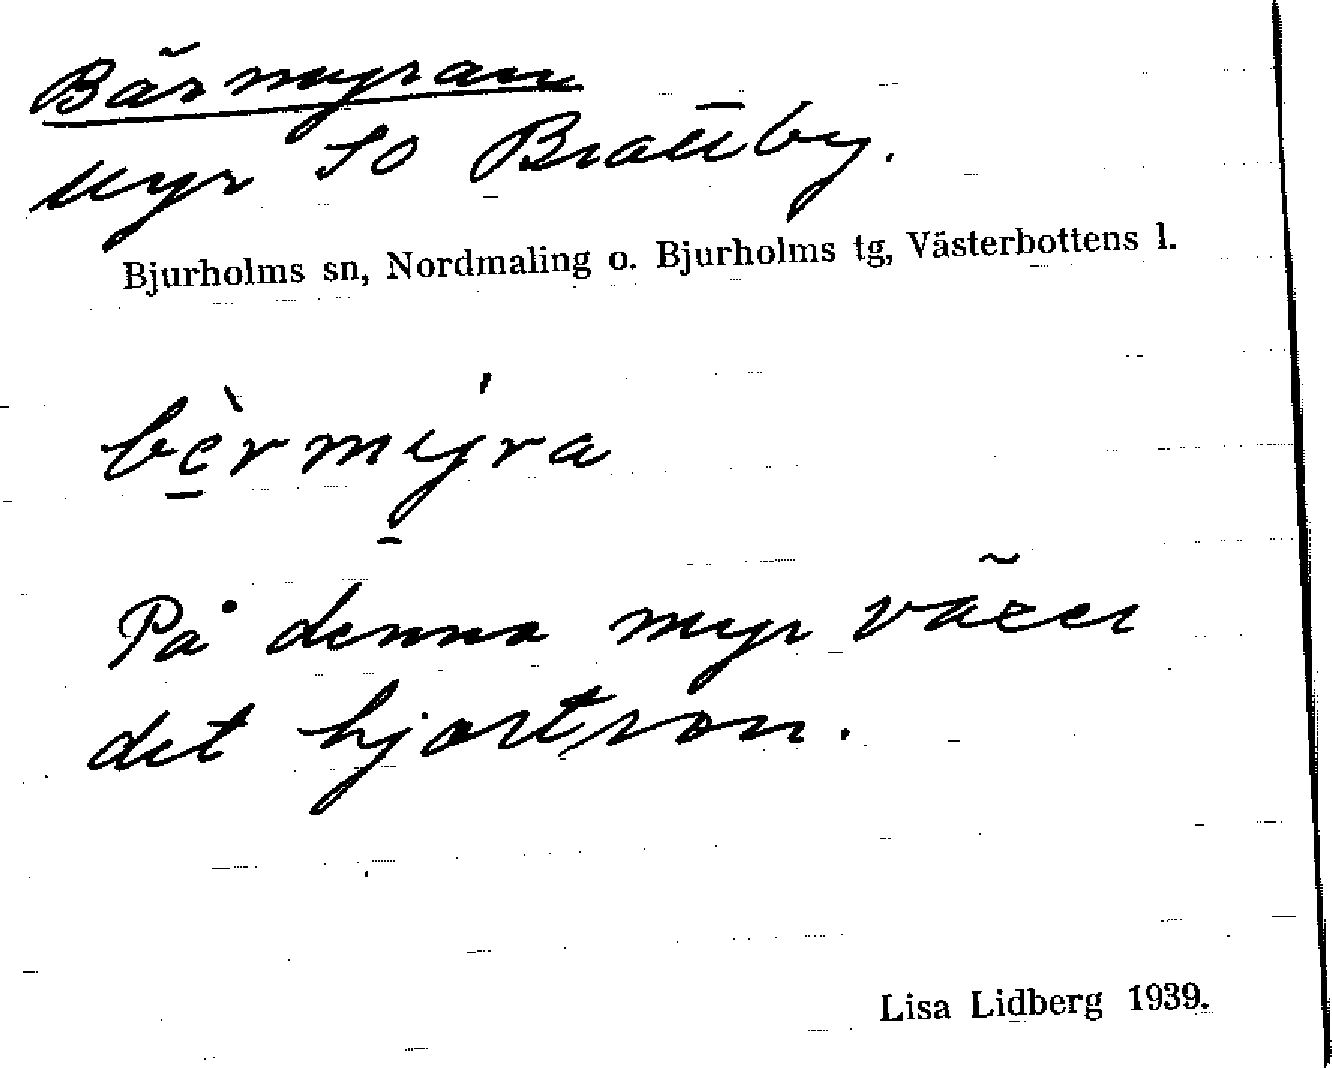 Bärmyran
Myr SO Brattby.
Bjurholms sn, Nordmaling o. Bjurholms tg, Västerbottens l.
bèrmýra
På denna myr växer
det hjortron.
Lisa Lidberg 1939.